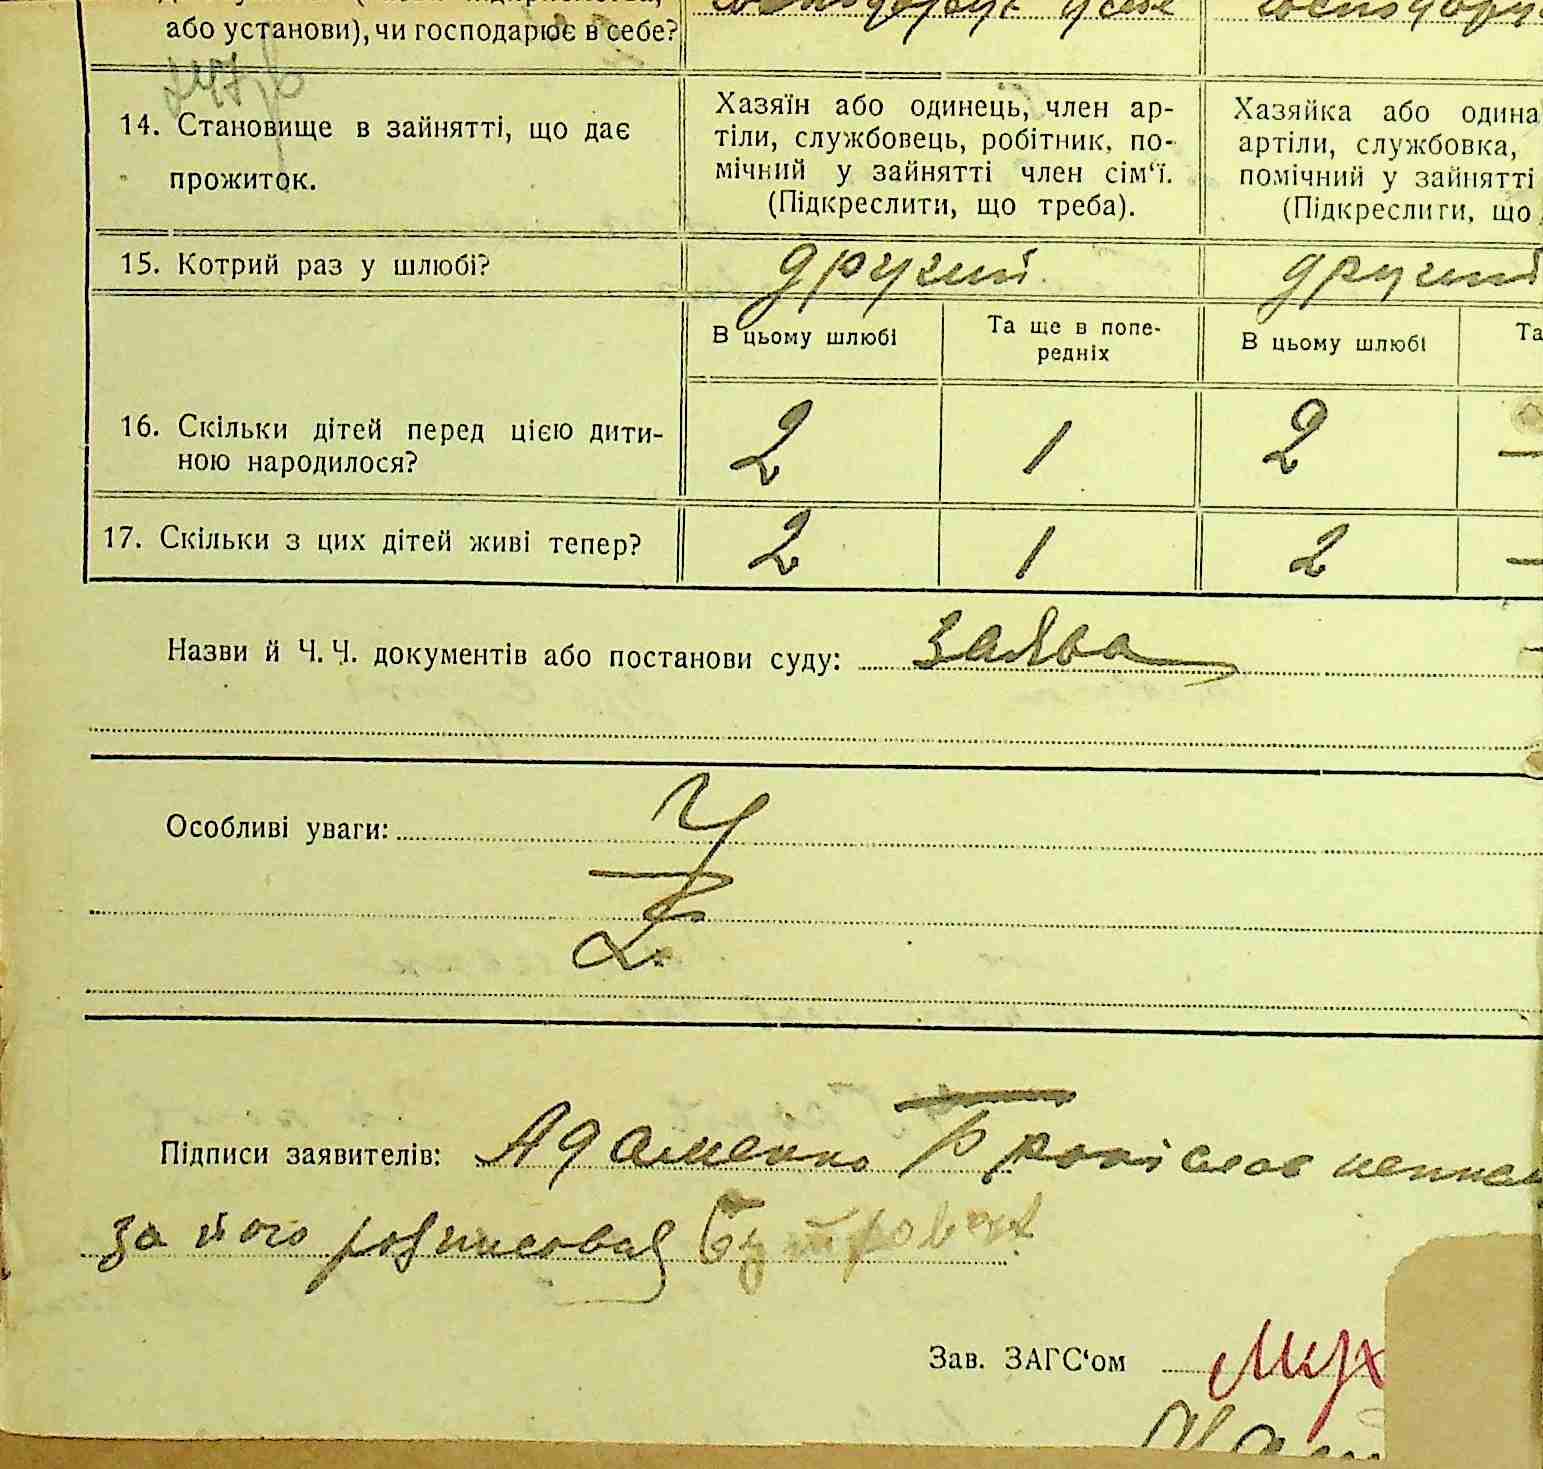 або установи), чи господарює в себе?
14. Становище в зайнятті, що дає
прожиток.
Хазяїн або одинець, член ар-
тіли, службовець, робітник, по-
мічний у зайнятті член сім'ї.
(Підкреслити, що треба).
Хазяйка або одина
артіли, службовка,
помічний у зайнятті
(Підкреслити, що
15. Котрий раз у шлюбі? другий другий
В цьому шлюбі
Та ще в попе-
редніх
В цьому шлюбі
Та
16. Скільки дітей перед цією дити-
ною народилося?
2 1 2 —
17. Скільки з цих дітей живі тепер? 2 1 2 —
Назви й Ч. Ч. документів або постанови суду: заява
Особливі уваги:
Підписи заявителів: Адаменко Броніслав
за його розписовав
Зав. ЗАГС'ом